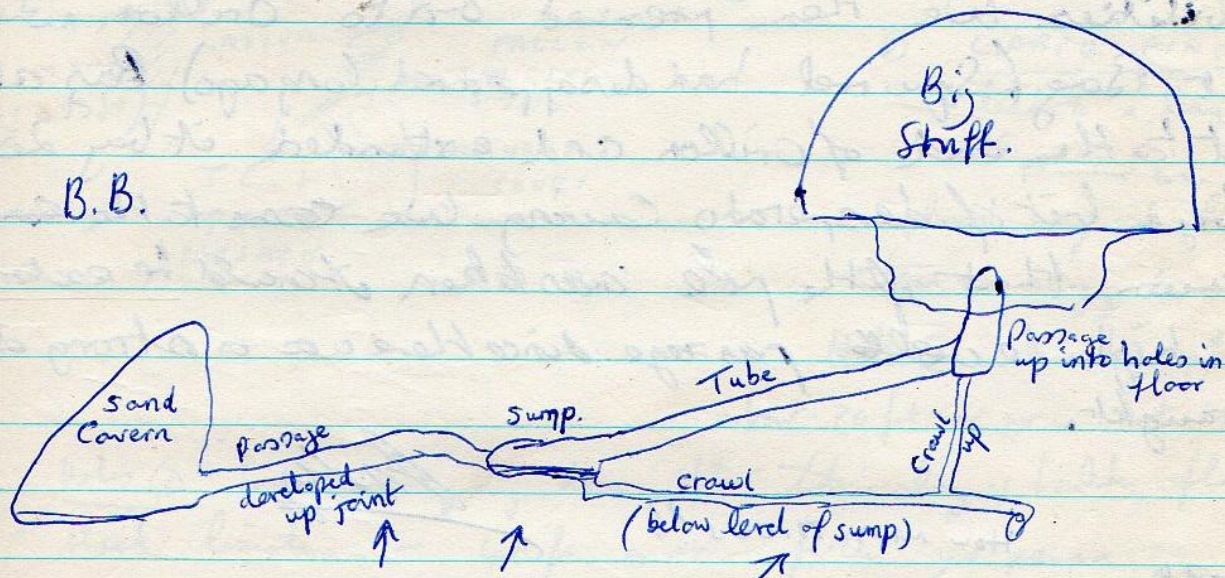 Big
Stuff.
B.B.
Passage
up into holes in
floor
Tube
Sand
Cavern
Sump.
Passage
developed
up joint
Crawl
up
crawl
(below level of sump)